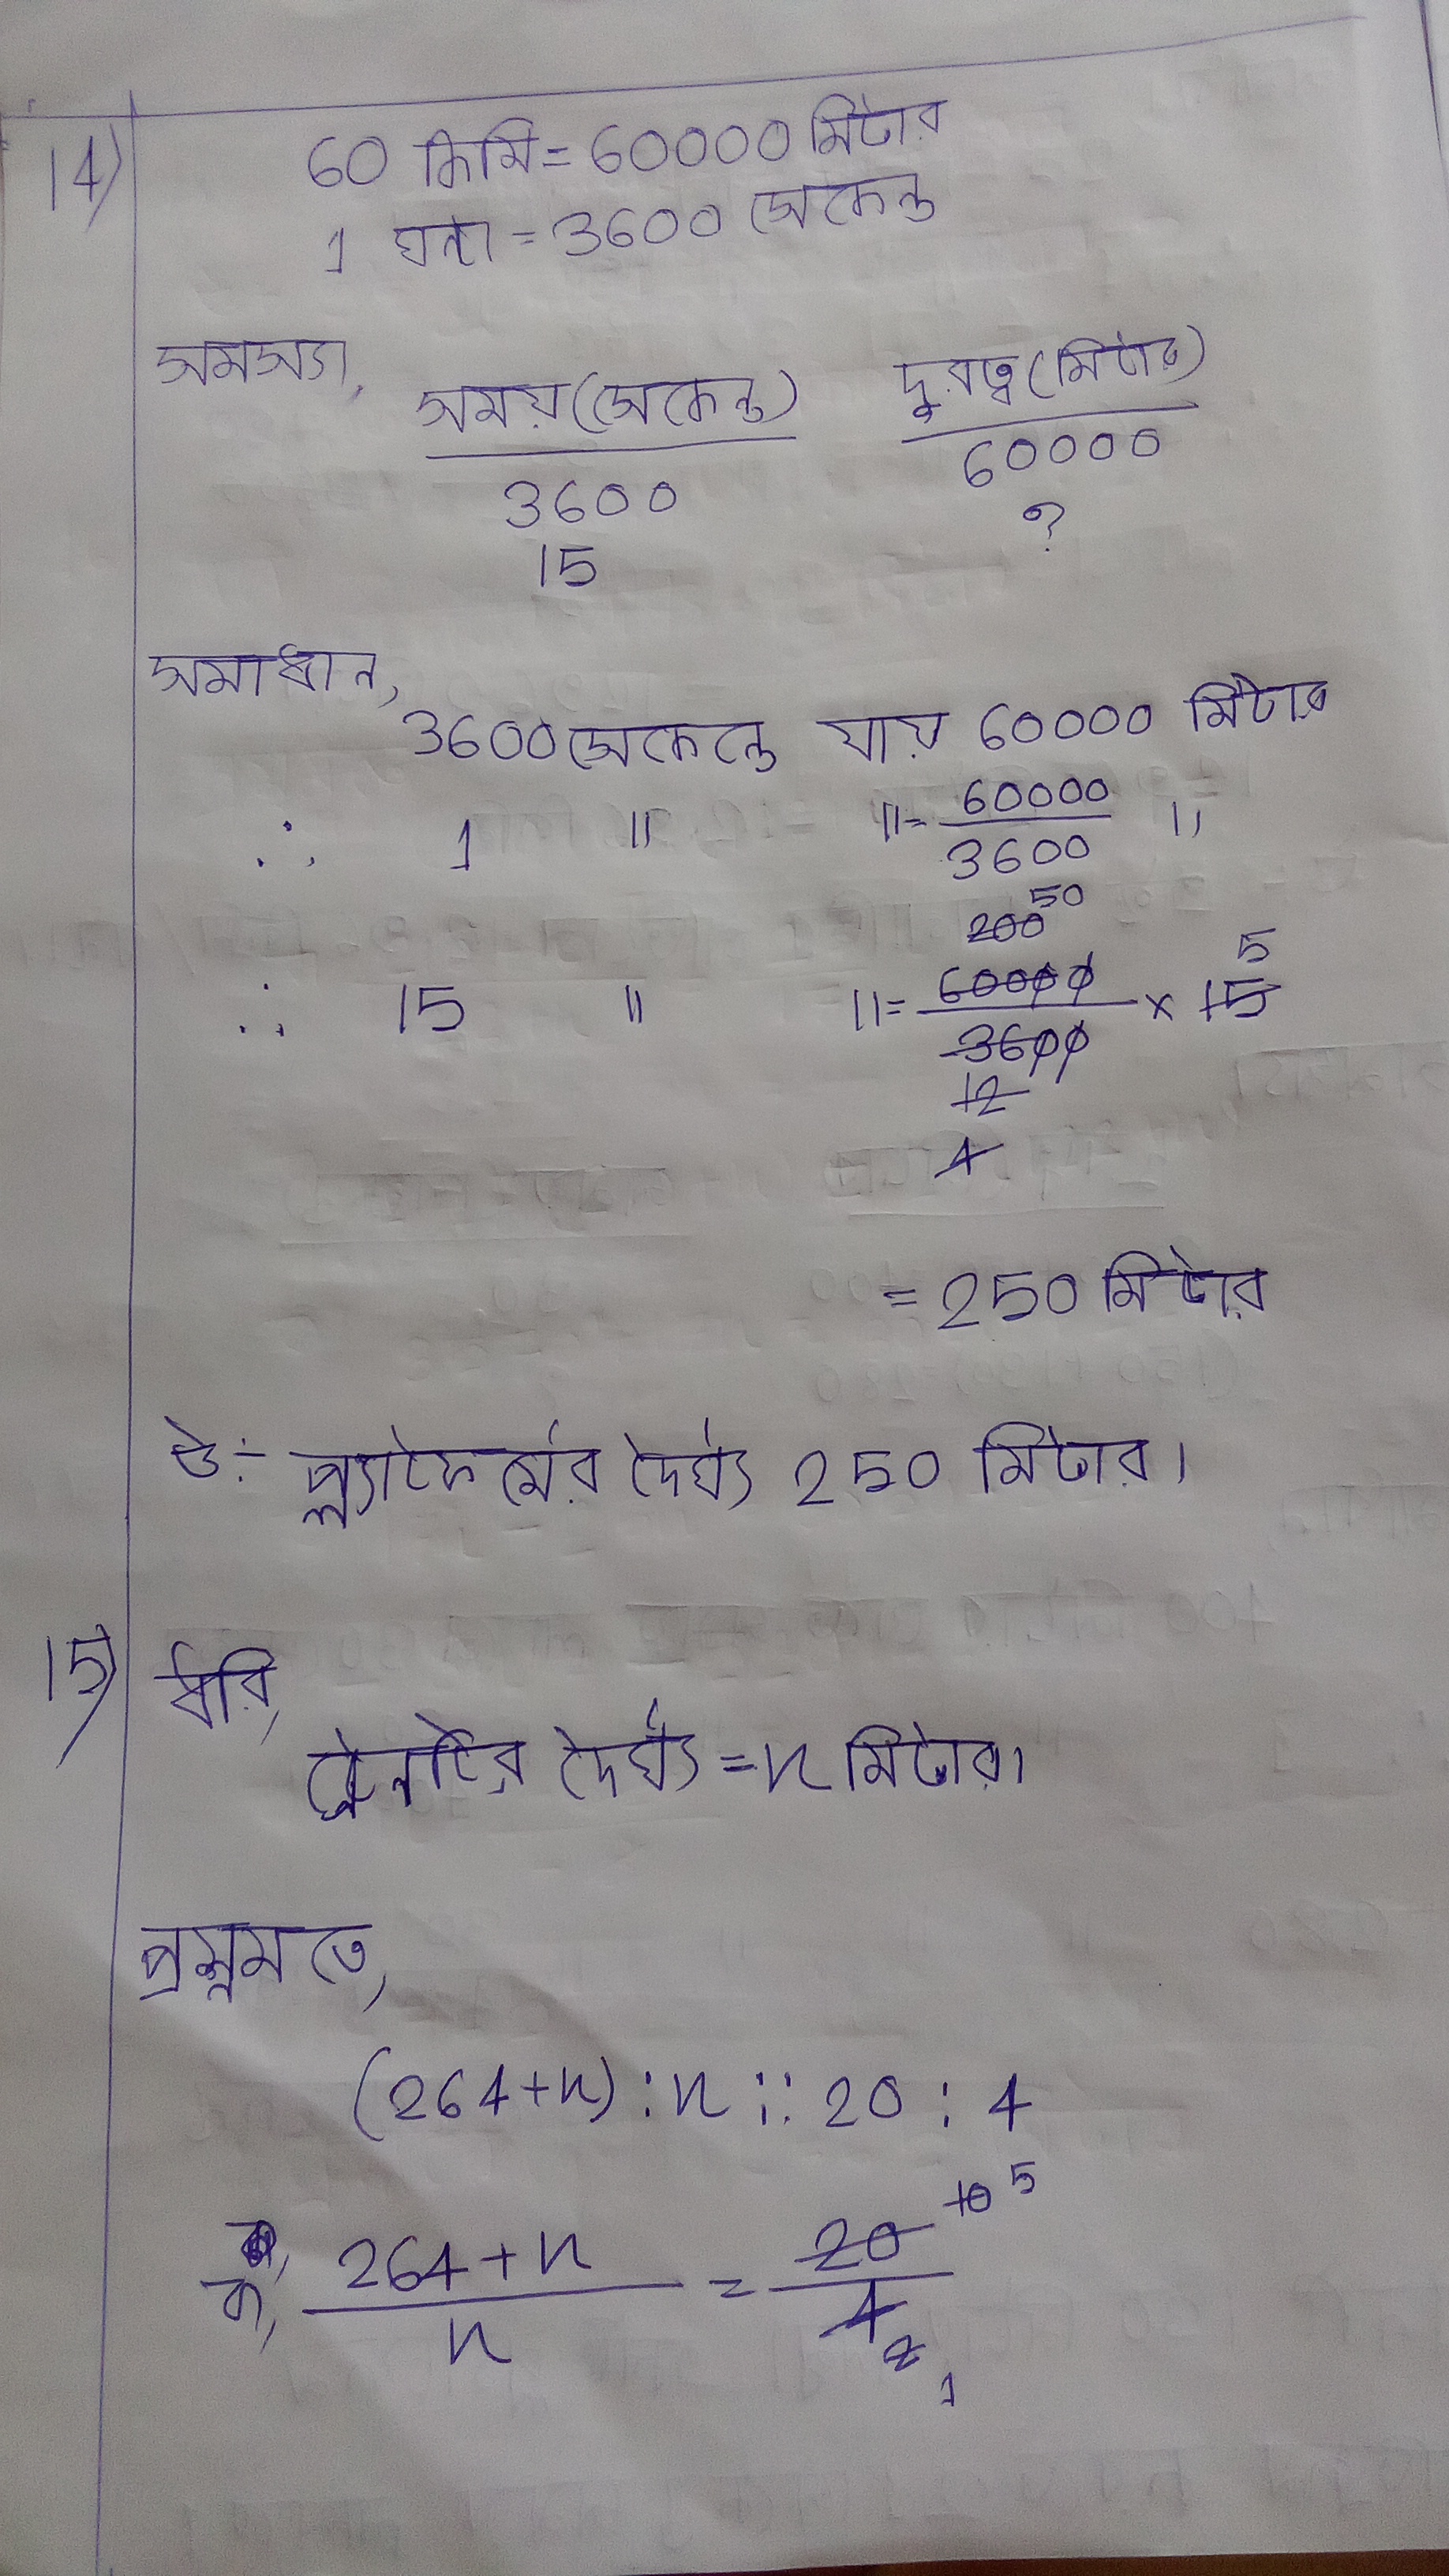 14)
60 কিমি = 60000 মিটার
1 ঘন্টা = 3600 সেকেন্ড
সমস্যা,
সময় (সেকেন্ড) দুরত্ব (মিটার)
3600 60000
15 ?
সমাধান,
3600 সেকেন্ডে যায় 60000 মিটার
∴ 1 " " = 60000/3600 "
200 50
∴ 15 " " = 60000/3600 × 15 5
12
4
= 250 মিটার
উঃ- প্ল্যাটফর্মের দৈর্ঘ্য 250 মিটার।
15) ধরি,
ট্রেনটির দৈর্ঘ্য = x মিটার।
প্রশ্নমতে,
(264+x) : x :: 20 : 4
10 5
বা, 264+x/x = 20/4
2
1